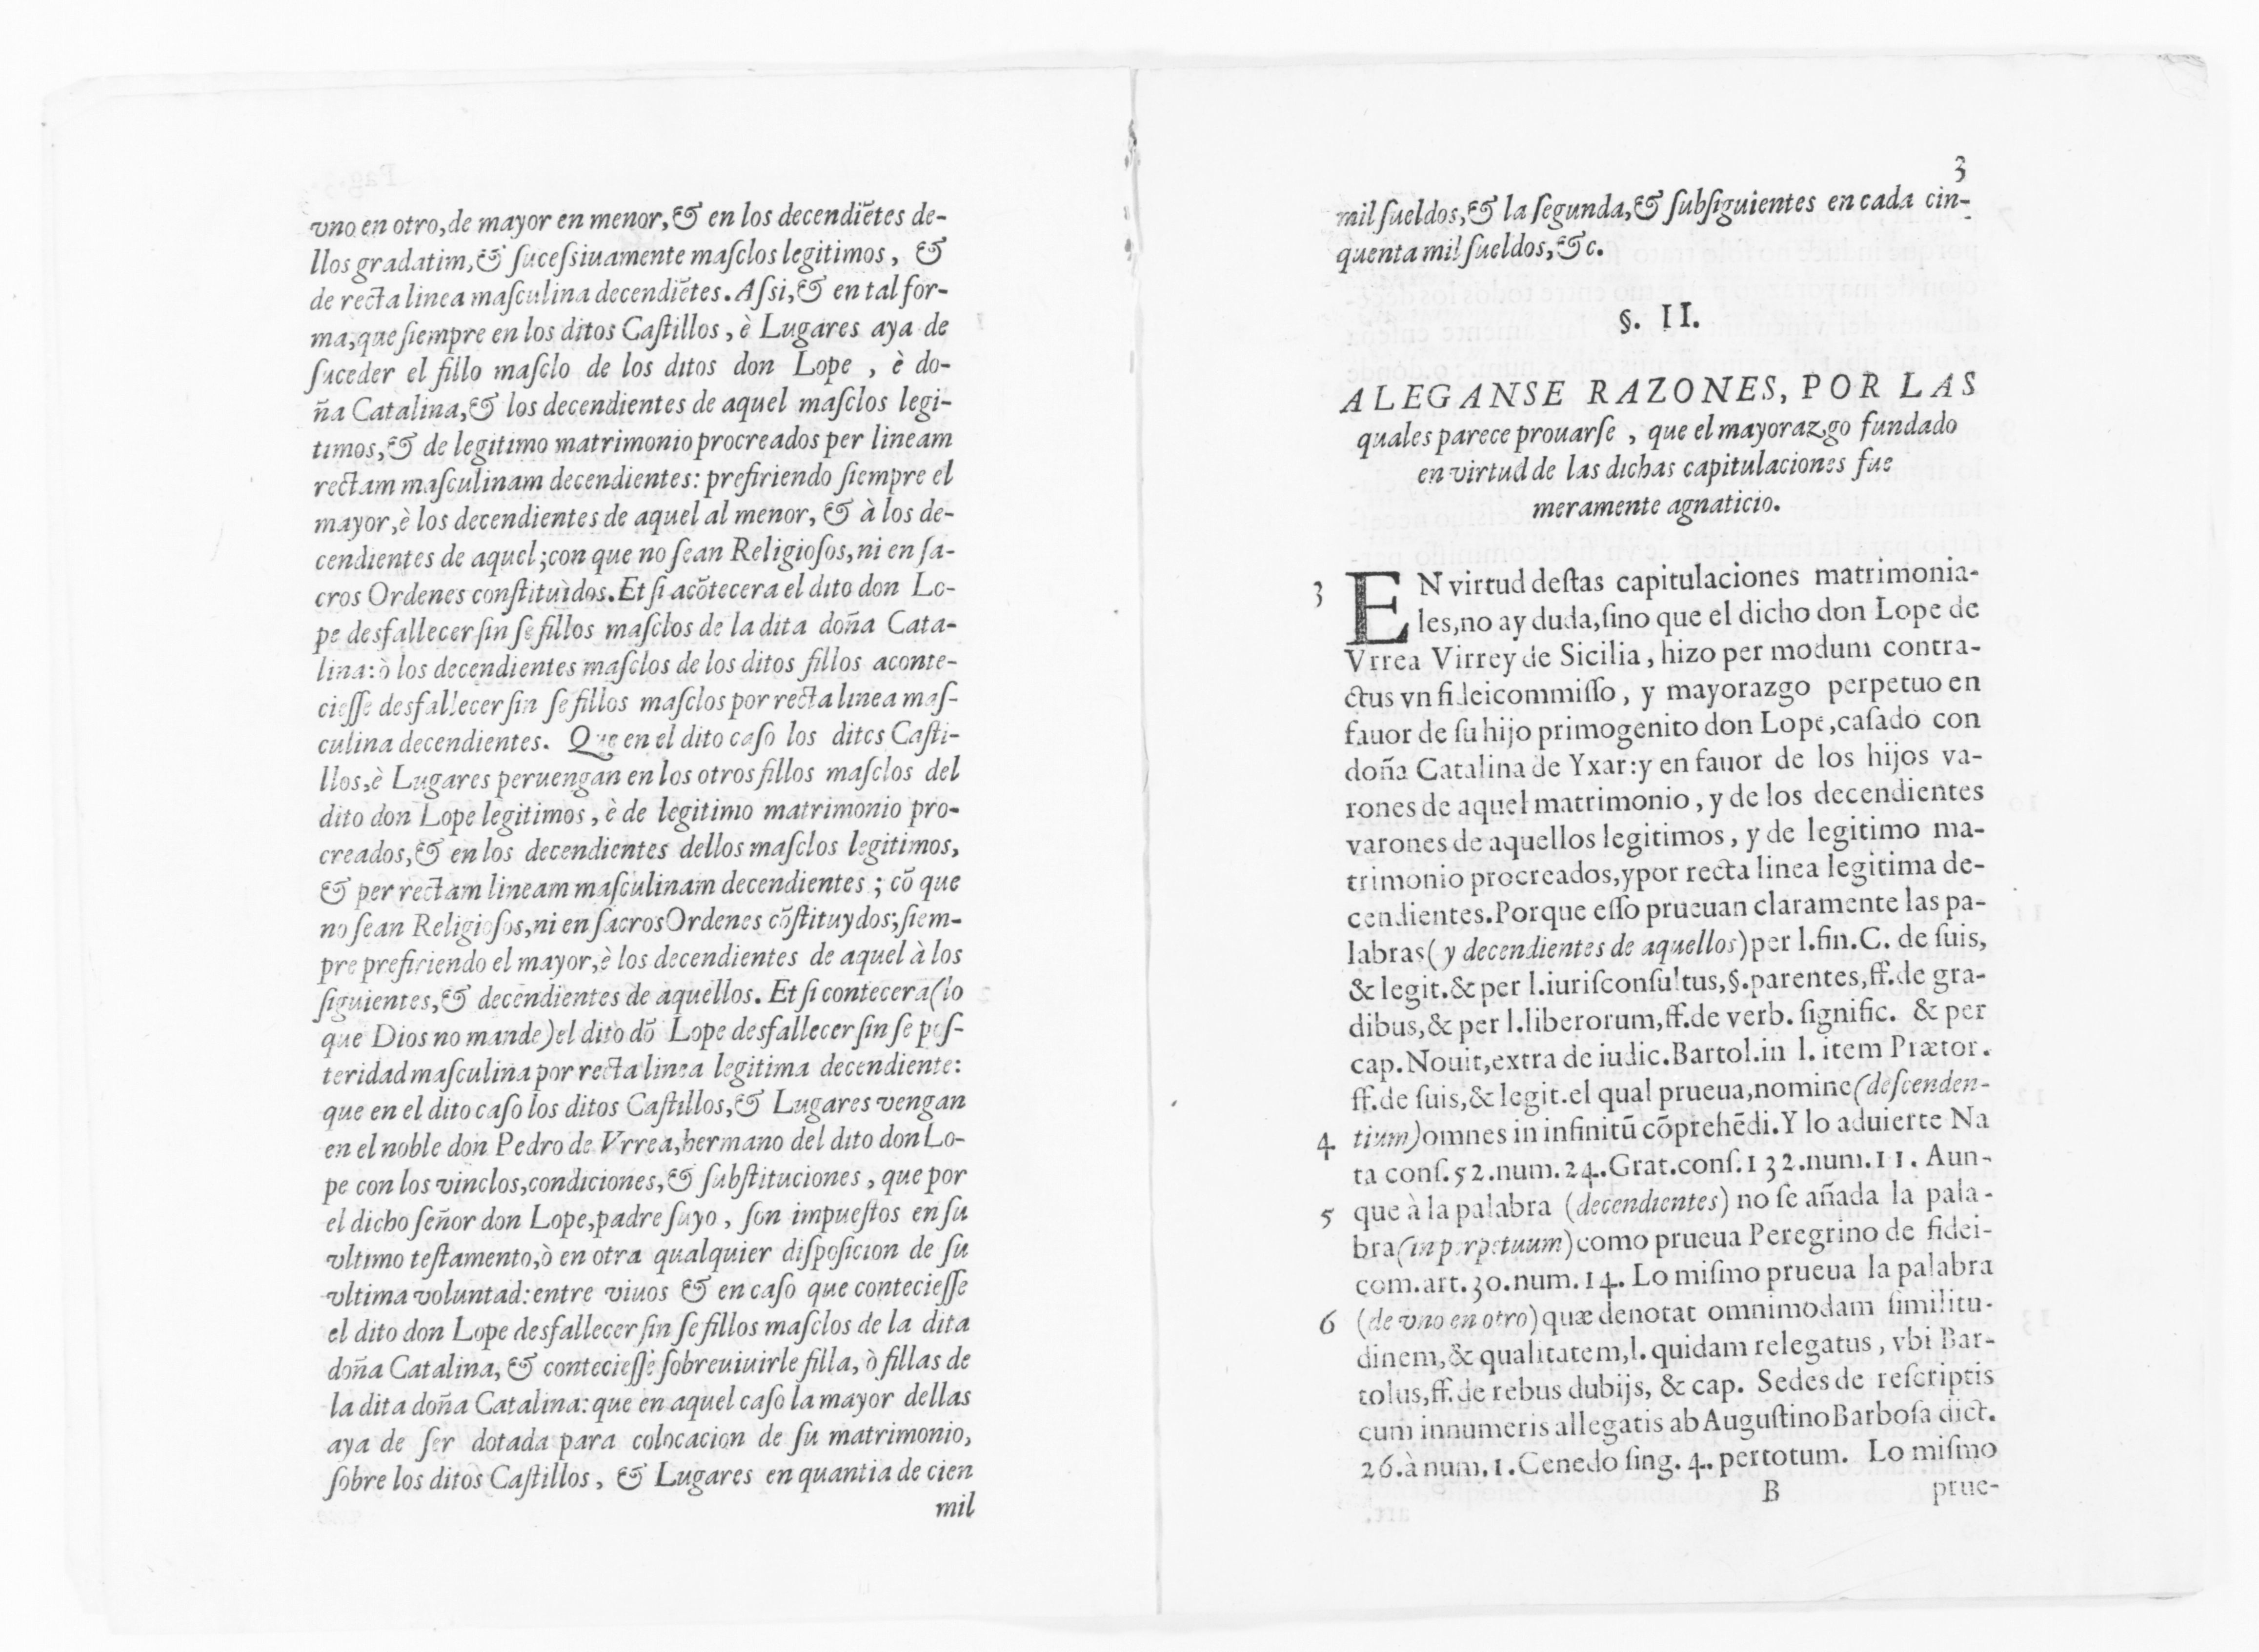 vno en otro, de mayor en menor, & en los decendiẽtes de-
llos gradatim, & sucessiuamente masclos legitimos, &
de recta linea masculina decendiẽtes. Assi, & en tal for-
ma, que siempre en los ditos Castillos, è Lugares aya de
suceder el fillo masclo de los ditos don Lope, è do-
ña Catalina, & los decendientes de aquel masclos legi-
timos, & de legitimo matrimonio procreados per lineam
rectam masculinam decendientes: prefiriendo siempre el
mayor, è los decendientes de aquel al menor, & à los de-
cendientes de aquel; con que no sean Religiosos, ni en sa-
cros Ordenes constituìdos. Et si acõtecera el dito don Lo-
pe desfallecer sin se fillos masclos de la dita doña Cata-
lina: ò los decendientes masclos de los ditos fillos aconte-
ciesse desfallecer sin se fillos masclos por recta linea mas-
culina decendientes. Que en el dito caso los ditos Casti-
llos, è Lugares peruengan en los otros fillos masclos del
dito don Lope legitimos, è de legitimo matrimonio pro-
creados, & en los decendientes dellos masclos legitimos,
& per rectam lineam masculinam decendientes; cõ que
no sean Religiosos, ni en sacros Ordenes cõstituydos; siem-
pre prefiriendo el mayor, è los decendientes de aquel à los
siguientes, & decendientes de aquellos. Et si contecera (lo
que Dios no mande) el dito dõ Lope desfallecer sin se pos-
teridad masculina por recta linea legitima decendiente:
que en el dito caso los ditos Castillos, & Lugares vengan
en el noble don Pedro de Vrrea, hermano del dito don Lo-
pe con los vinclos, condiciones, & substituciones, que por
el dicho señor don Lope, padre suyo, son impuestos en su
vltimo testamento, ò en otra qualquier disposicion de su
vltima voluntad: entre viuos & en caso que conteciesse
el dito don Lope desfallecer sin se fillos masclos de la dita
doña Catalina, & conteciesse sobreuiuirle filla, ò fillas de
la dita doña Catalina: que en aquel caso la mayor dellas
aya de ser dotada para colocacion de su matrimonio,
sobre los ditos Castillos, & Lugares en quantia de cien
mil
3
mil sueldos, & la segunda, & subsiguientes en cada cin-
quenta mil sueldos, &c.
§. II.
ALEGANSE RAZONES, POR LAS
quales parece prouarse, que el mayorazgo fundado
en virtud de las dichas capitulaciones fue
meramente agnaticio.
3 EN virtud destas capitulaciones matrimonia-
les, no ay duda, sino que el dicho don Lope de
Vrrea Virrey de Sicilia, hizo per modum contra-
ctus vn fideicommisso, y mayorazgo perpetuo en
fauor de su hijo primogenito don Lope, casado con
doña Catalina de Yxar: y en fauor de los hijos va-
rones de aquel matrimonio, y de los decendientes
varones de aquellos legitimos, y de legitimo ma-
trimonio procreados, y por recta linea legitima de-
cendientes. Porque esso prueuan claramente las pa-
labras (y decendientes de aquellos) per l. fin. C. de suis,
& legit. & per l. iurisconsultus, §. parentes, ff. de gra-
dibus, & per l. liberorum, ff. de verb. signific. & per
cap. Nouit, extra de iudic. Bartol. in l. item Prætor.
ff. de suis, & legit. el qual prueua, nomine (descenden-
4 tium) omnes in infinitũ cõprehẽdi. Y lo aduierte Na
ta cons. 52. num. 24. Grat. cons. 132. num. 11. Aun-
5 que à la palabra (decendientes) no se añada la pala-
bra (in perpetuum) como prueua Peregrino de fidei-
com. art. 30. num. 14. Lo mismo prueua la palabra
6 (de vno en otro) quæ denotat omnimodam similitu-
dinem, & qualitatem, l. quidam relegatus, vbi Bar-
tolus, ff. de rebus dubijs, & cap. Sedes de rescriptis
cum innumeris allegatis ab Augustino Barbosa dict.
26. à num. 1. Cenedo sing. 4. per totum. Lo mismo
B prue-